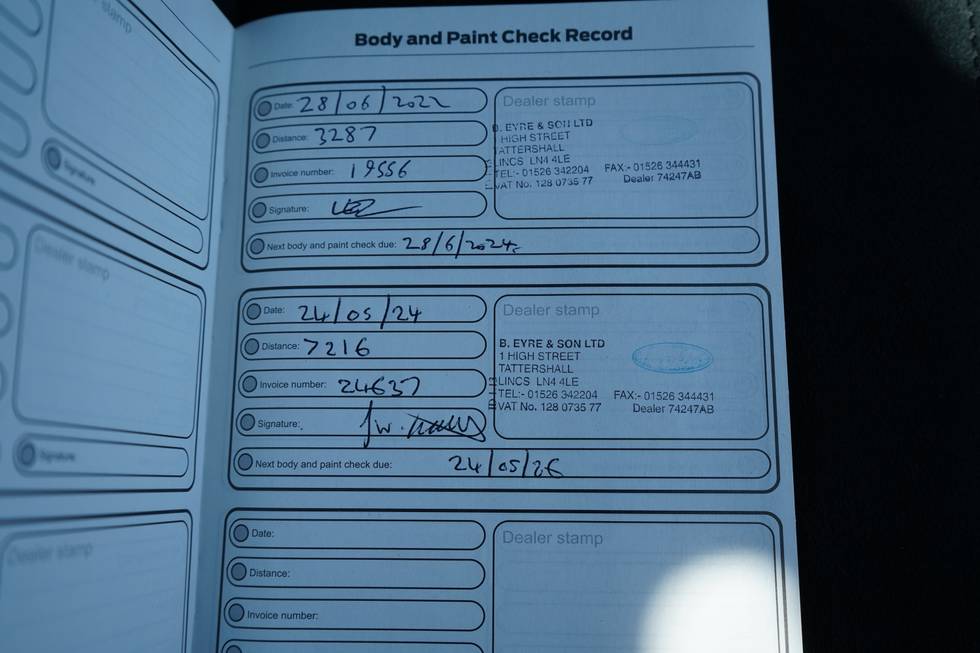 stamp
Signature
Dealer stamp
Signature
Dealer stamp
Body and Paint Check Record
Date: 28/06/2022
Distance: 3287
Invoice number: 19556
Signature:
Next body and paint check due: 28/6/2024
Dealer stamp
B. EYRE & SON LTD
1 HIGH STREET
TATTERSHALL
LINCS LN4 4LE
TEL:- 01526 342204 FAX:- 01526 344431
VAT No. 128 0735 77 Dealer 74247AB
Date: 24/05/24
Distance: 7216
Invoice number: 24637
Signature:
Next body and paint check due: 24/05/26
Dealer stamp
B. EYRE & SON LTD
1 HIGH STREET
TATTERSHALL
LINCS LN4 4LE
TEL:- 01526 342204 FAX:- 01526 344431
VAT No. 128 0735 77 Dealer 74247AB
Date:
Distance:
Invoice number:
Dealer stamp